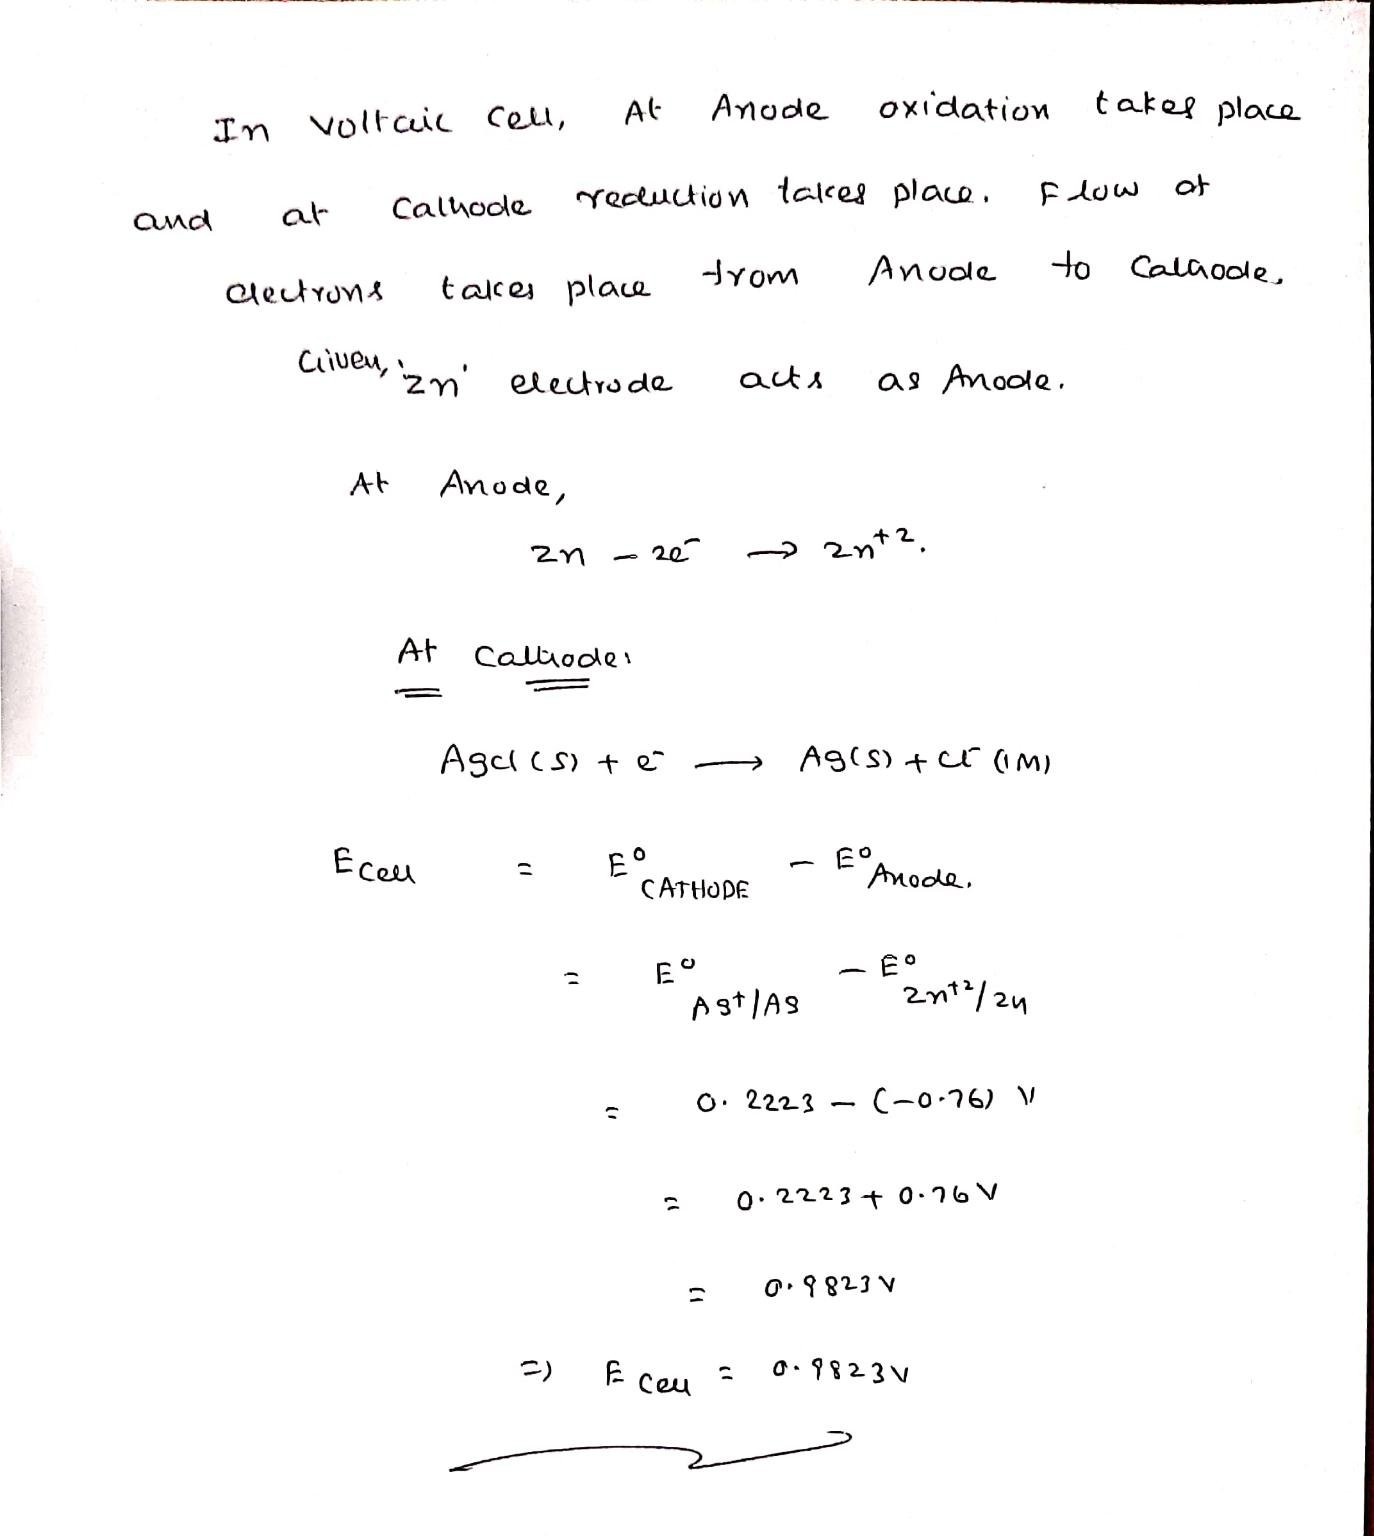 In voltaic cell, At Anode oxidation takes place
and at Cathode reduction takes place. Flow of
electrons takes place from Anode to Cathode.
Given, 'Zn' electrode acts as Anode.
At Anode,
Zn - 2e⁻ → Zn⁺².
At Cathode:
AgCl(s) + e⁻ → Ag(s) + Cl⁻ (1M)
E cell = E° CATHODE - E° Anode.
= E° Ag⁺/Ag - E° Zn⁺²/Zn
= 0.2223 - (-0.76) V
= 0.2223 + 0.76 V
= 0.9823 V
⇒ E cell = 0.9823 V